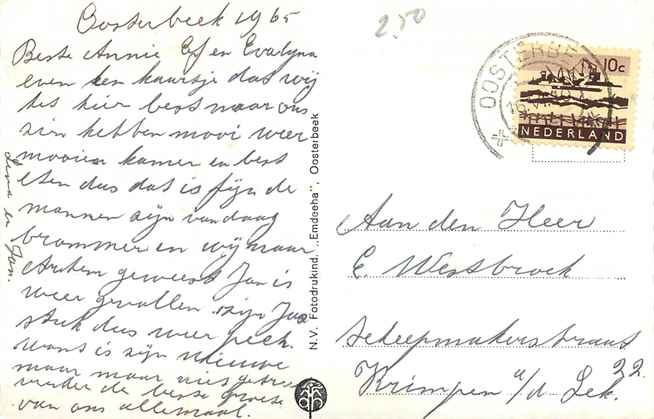 Oosterbeek 1965
Beste Annie Ef en Evalyna
even een kaartje dat wij
het hier best naar ons
zien hebben mooi weer
mooien kamer en best
eten dus dat is fijn de
mannen zijn vandaag
brommer en wij naar
Arhem geweest Jan is
weer gevallen zijn Jas
stuk dus weer pech
want is zijn nieuwe
maar maar niet getreurd
verder de beste groete
van ons allemaal.
Lena en Jan.
N.V. Fotodrukind. „Emdeeha”, Oosterbeek
2,50
OOSTERBE
10c
NEDERLAND
Aan den Heer
E. Westbroek
Scheepmakerstraat
22
Krimpen a/d Lek.